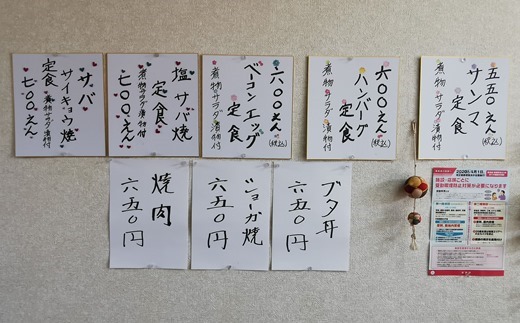 五五〇えん(税込)
サンマ
定食
煮物 サラダ 漬物付
六〇〇えん(税込)
ハンバーグ
定食
煮物 サラダ 漬物付
六〇〇えん(税込)
ベーコンエッグ
定食
煮物 サラダ 漬物付
塩サバ焼
定食
煮物 サラダ 漬物付
七〇〇えん
サバ
サイキョウ焼
定食 煮物 サラダ 漬物付
七〇〇えん
ブタ丼
六五〇円
ショーガ焼
六五〇円
焼肉
六五〇円
2020年4月1日
施設・店舗ごとに
受動喫煙防止対策が必要になります